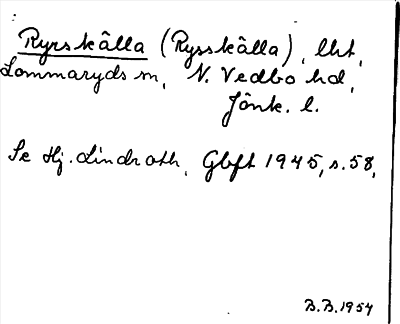 Ryrskälla (Rysskälla), lht,
Lommaryds sn, N. Vedbo hd,
Jönk. l.
Se Hj. Lindroth, Gbft 1945, s. 58,
B.B. 1954